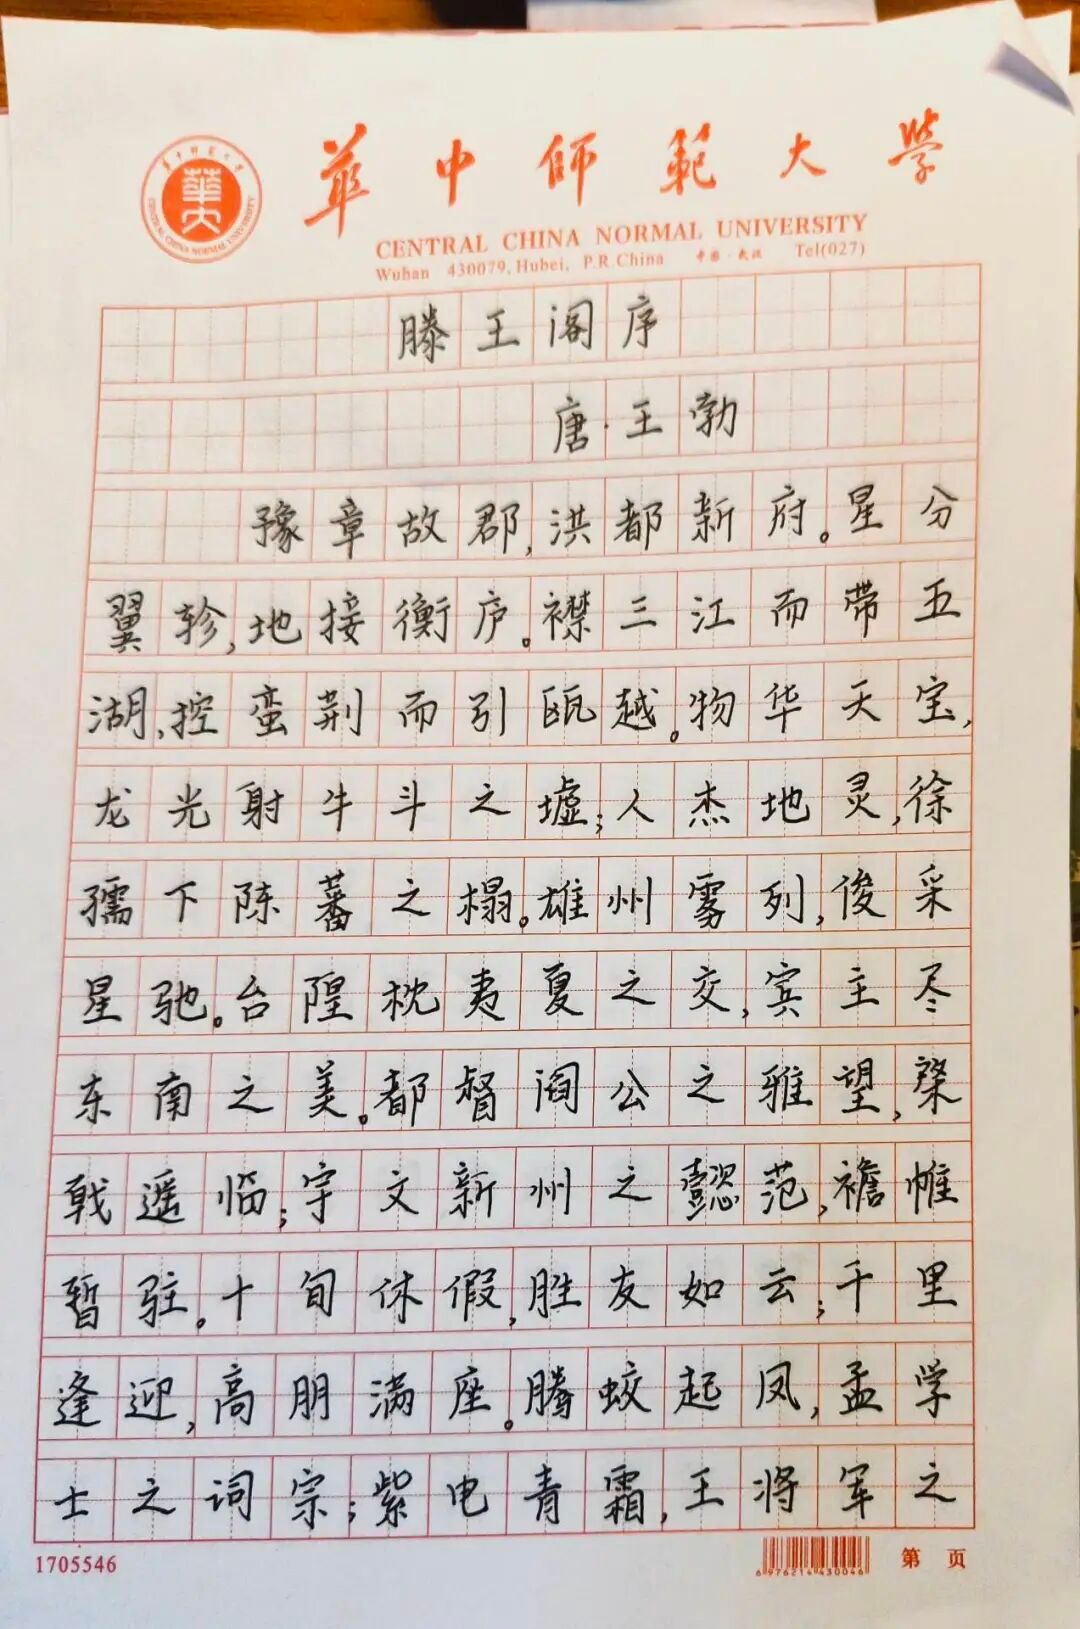 華中師範大學
CENTRAL CHINA NORMAL UNIVERSITY
Wuhan 430079, Hubei, P.R.China 中国·武汉 Tel(027)
滕王阁序
唐·王勃
豫章故郡,洪都新府。星分
翼轸,地接衡庐。襟三江而带五
湖,控蛮荆而引瓯越。物华天宝,
龙光射牛斗之墟;人杰地灵,徐
孺下陈蕃之榻。雄州雾列,俊采
星驰。台隍枕夷夏之交,宾主尽
东南之美。都督阎公之雅望,棨
戟遥临;宇文新州之懿范,襜帷
暂驻。十旬休假,胜友如云;千里
逢迎,高朋满座。腾蛟起凤,孟学
士之词宗;紫电青霜,王将军之
1705546
6976214430046
第 页